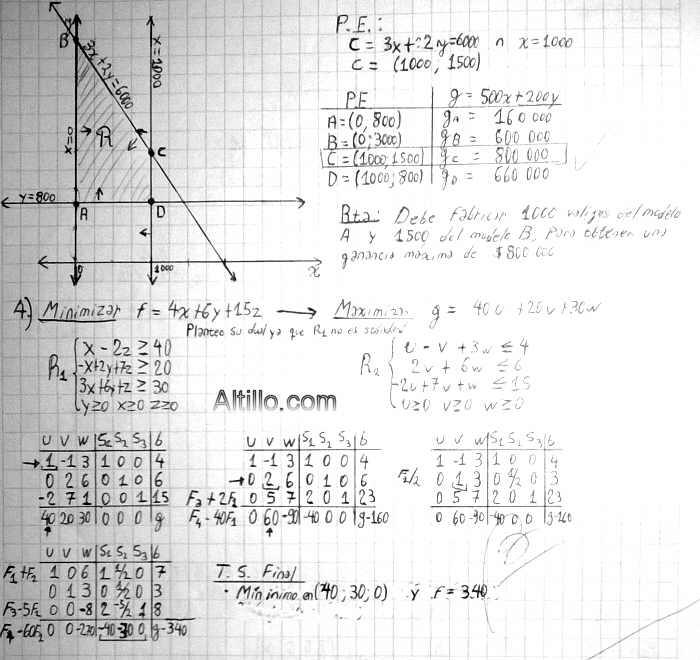 B
3x+2y=6000
x=1000
x=0
R
C
y=800
A
D
0
1000
x
P.E.:
C = 3x+2y=6000 ∩ x=1000
C = (1000, 1500)
P.E | g = 500x+200y
A=(0,800) | gA = 160 000
B=(0;3000) | gB = 600 000
C=(1000;1500) | gC = 800 000
D=(1000;800) | gD = 660 000
Rta: Debe fabricar 1000 valijas del modelo
A y 1500 del modelo B, para obtener una
ganancia máxima de $800 000
4) Minimizar f = 4x+6y+15z → Maximizar g = 40u+20v+30w
Planteo su dual ya que R1 no es standar
R1 { x - 2z ≥ 40
-x+2y+7z ≥ 20
3x+6y+z ≥ 30
y≥0 x≥0 z≥0
R2 { u - v + 3w ≤ 4
2v + 6w ≤ 6
-2u+7v+w ≤ 15
u≥0 v≥0 w≥0
Altillo.com
u v w | S1 S2 S3 | b
→ 1 -1 3 | 1 0 0 | 4
0 2 6 | 0 1 0 | 6
-2 7 1 | 0 0 1 | 15
40 20 30 | 0 0 0 | g
u v w | S1 S2 S3 | b
1 -1 3 | 1 0 0 | 4
→ 0 2 6 | 0 1 0 | 6
F3+2F1 0 5 7 | 2 0 1 | 23
F4-40F1 0 60 -90 | -40 0 0 | g-160
u v w | S1 S2 S3 | b
1 -1 3 | 1 0 0 | 4
F2/2 0 1 3 | 0 1/2 0 | 3
0 5 7 | 2 0 1 | 23
0 60 -90 | -40 0 0 | g-160
u v w | S1 S2 S3 | b
F1+F2 1 0 6 | 1 1/2 0 | 7
0 1 3 | 0 1/2 0 | 3
F3-5F2 0 0 -8 | 2 -5/2 1 | 8
F4-60F2 0 0 -270 | -40 -30 0 | g-340
T. S. Final
· Mínimo en (40; 30; 0) y f = 340.